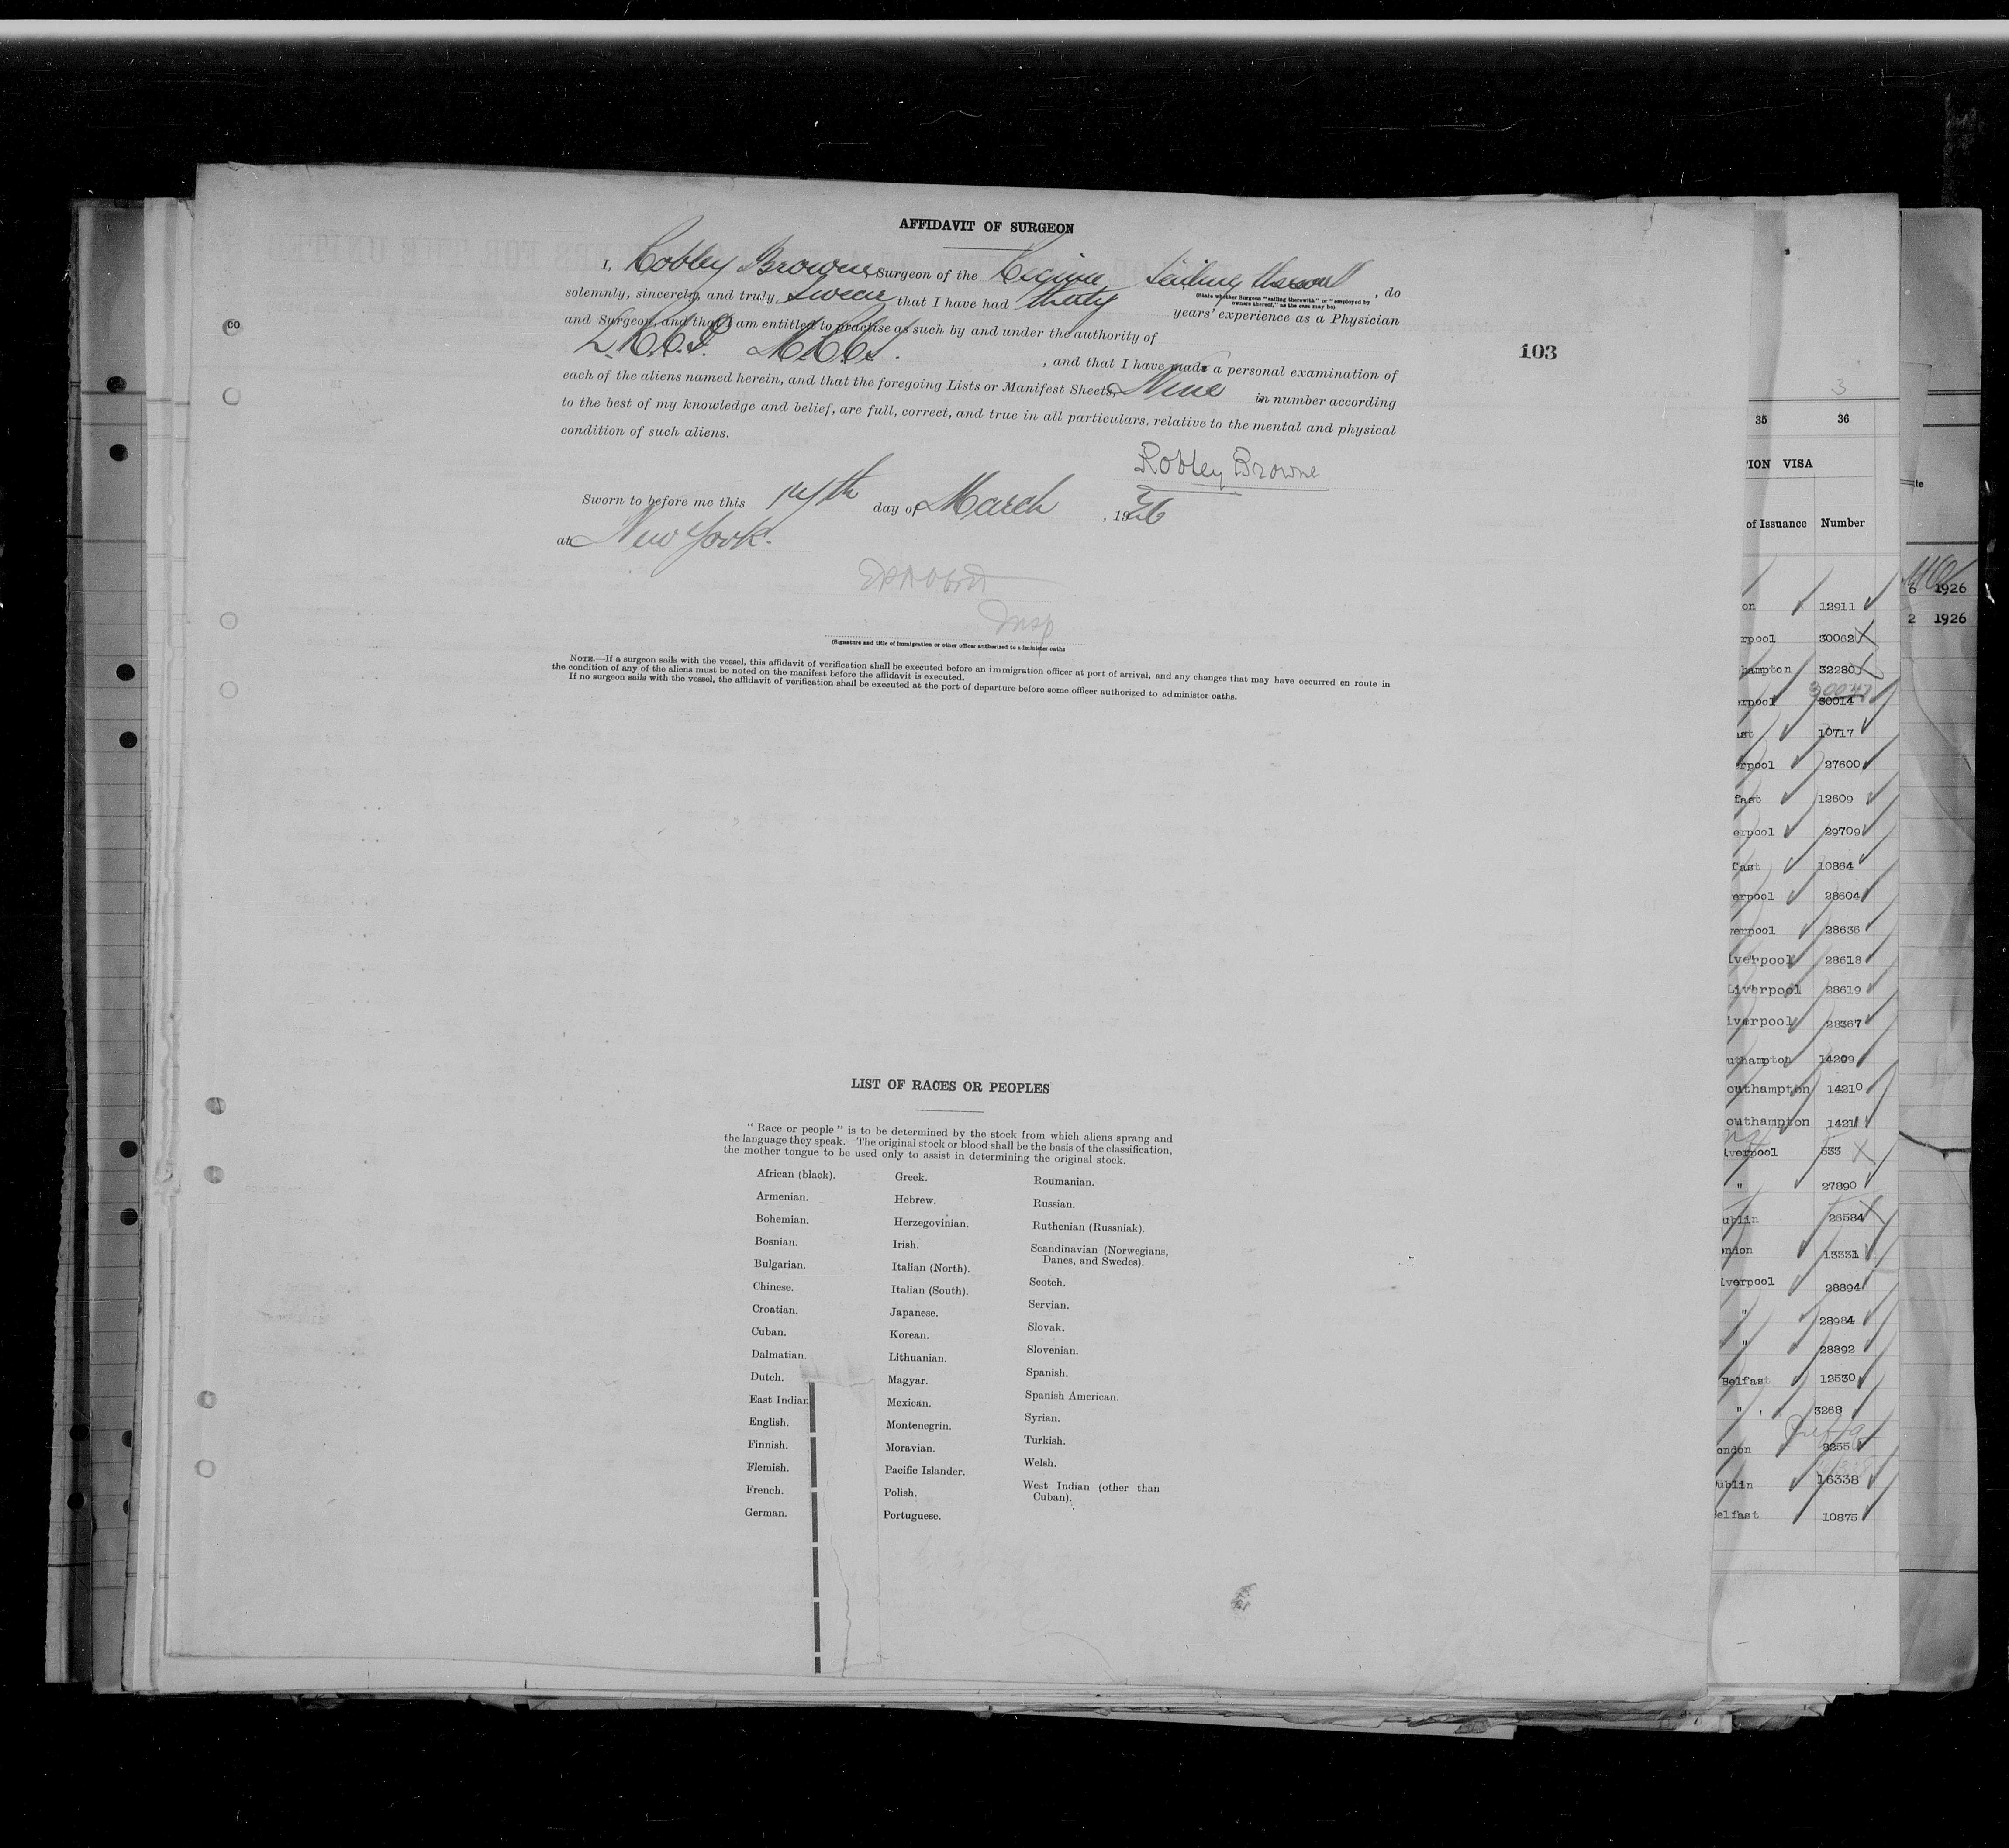 AFFIDAVIT OF SURGEON
I, Robley Browne, Surgeon of the Regina Sailing therewith, do
(State whether Surgeon "sailing therewith" or "employed by
owners thereof," as the case may be)
solemnly, sincerely, and truly Swear that I have had thirty years' experience as a Physician
and Surgeon, and that I am entitled to practise as such by and under the authority of
L.R.C.P. M.R.C.S. , and that I have made a personal examination of
each of the aliens named herein, and that the foregoing Lists or Manifest Sheets, Nine in number according
to the best of my knowledge and belief, are full, correct, and true in all particulars, relative to the mental and physical
condition of such aliens.
103
Robley Browne
Sworn to before me this 14th day of March , 1926
at New York.
Insp
(Signature and title of immigration or other officer authorized to administer oaths
NOTE.—If a surgeon sails with the vessel, this affidavit of verification shall be executed before an immigration officer at port of arrival, and any changes that may have occurred en route in
the condition of any of the aliens must be noted on the manifest before the affidavit is executed.
If no surgeon sails with the vessel, the affidavit of verification shall be executed at the port of departure before some officer authorized to administer oaths.
LIST OF RACES OR PEOPLES
"Race or people" is to be determined by the stock from which aliens sprang and
the language they speak. The original stock or blood shall be the basis of the classification,
the mother tongue to be used only to assist in determining the original stock.
African (black).
Armenian.
Bohemian.
Bosnian.
Bulgarian.
Chinese.
Croatian.
Cuban.
Dalmatian.
Dutch.
East Indian
English.
Finnish.
Flemish.
French.
German.
Greek.
Hebrew.
Herzegovinian.
Irish.
Italian (North).
Italian (South).
Japanese.
Korean.
Lithuanian.
Magyar.
Mexican.
Montenegrin.
Moravian.
Pacific Islander.
Polish.
Portuguese.
Roumanian.
Russian.
Ruthenian (Russniak).
Scandinavian (Norwegians,
Danes, and Swedes).
Scotch.
Servian.
Slovak.
Slovenian.
Spanish.
Spanish American.
Syrian.
Turkish.
Welsh.
West Indian (other than
Cuban).
3
35 36
TION VISA
of Issuance Number
on 12911
rpool 30062
hampton 32280
30047
erpool 30014
ast 10717
erpool 27600
fast 12609
erpool 29709
fast 10864
erpool 28604
verpool 28636
iverpool 28618
Liverpool 28619
iverpool 28367
uthampton 14209
outhampton 14210
outhampton 14211
iverpool 533
" 27890
ublin 26584
ondon 13331
iverpool 28894
" 28984
" 28892
Belfast 12530
" 3268
ondon 8255
ublin 16338
Belfast 10875
6 1926
2 1926